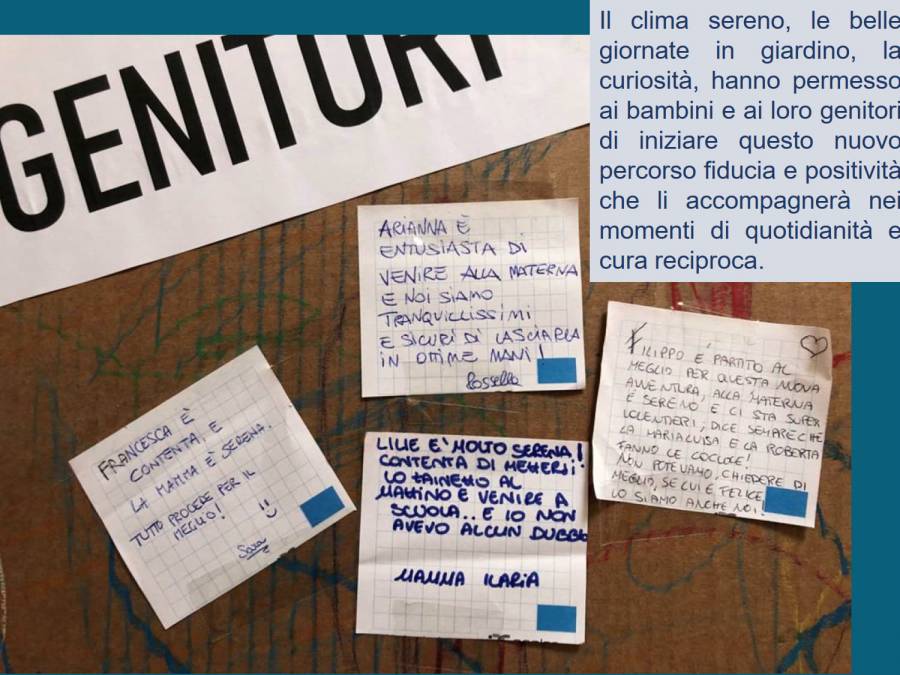 GENITORI
Il clima sereno, le belle
giornate in giardino, la
curiosità, hanno permesso
ai bambini e ai loro genitori
di iniziare questo nuovo
percorso fiducia e positività
che li accompagnerà nei
momenti di quotidianità e
cura reciproca.
ARIANNA È
ENTUSIASTA DI
VENIRE ALLA MATERNA
E NOI SIAMO
TRANQUILLISSIMI
E SICURI DI LASCIARLA
IN OTTIME MANI!
Rossella
FILIPPO È PARTITO AL
MEGLIO PER QUESTA NUOVA
AVVENTURA, ALLA MATERNA
È SERENO E CI STA SUPER
VOLENTIERI, DICE SEMPRE CHE
LA MARIALUISA E LA ROBERTA
FANNO LE COCCOLE!
NON POTEVAMO CHIEDERE DI
MEGLIO, SE LUI È FELICE,
LO SIAMO ANCHE NOI!
FRANCESCA È
CONTENTA, E
LA MAMMA È SERENA.
TUTTO PROCEDE PER IL
MEGLIO! :)
Sara
LILIE E' MOLTO SERENA!
CONTENTA DI METTERSI
LO ZAINETTO AL
MATTINO E VENIRE A
SCUOLA.. E IO NON
AVEVO ALCUN DUBBI
MAMMA ILARIA